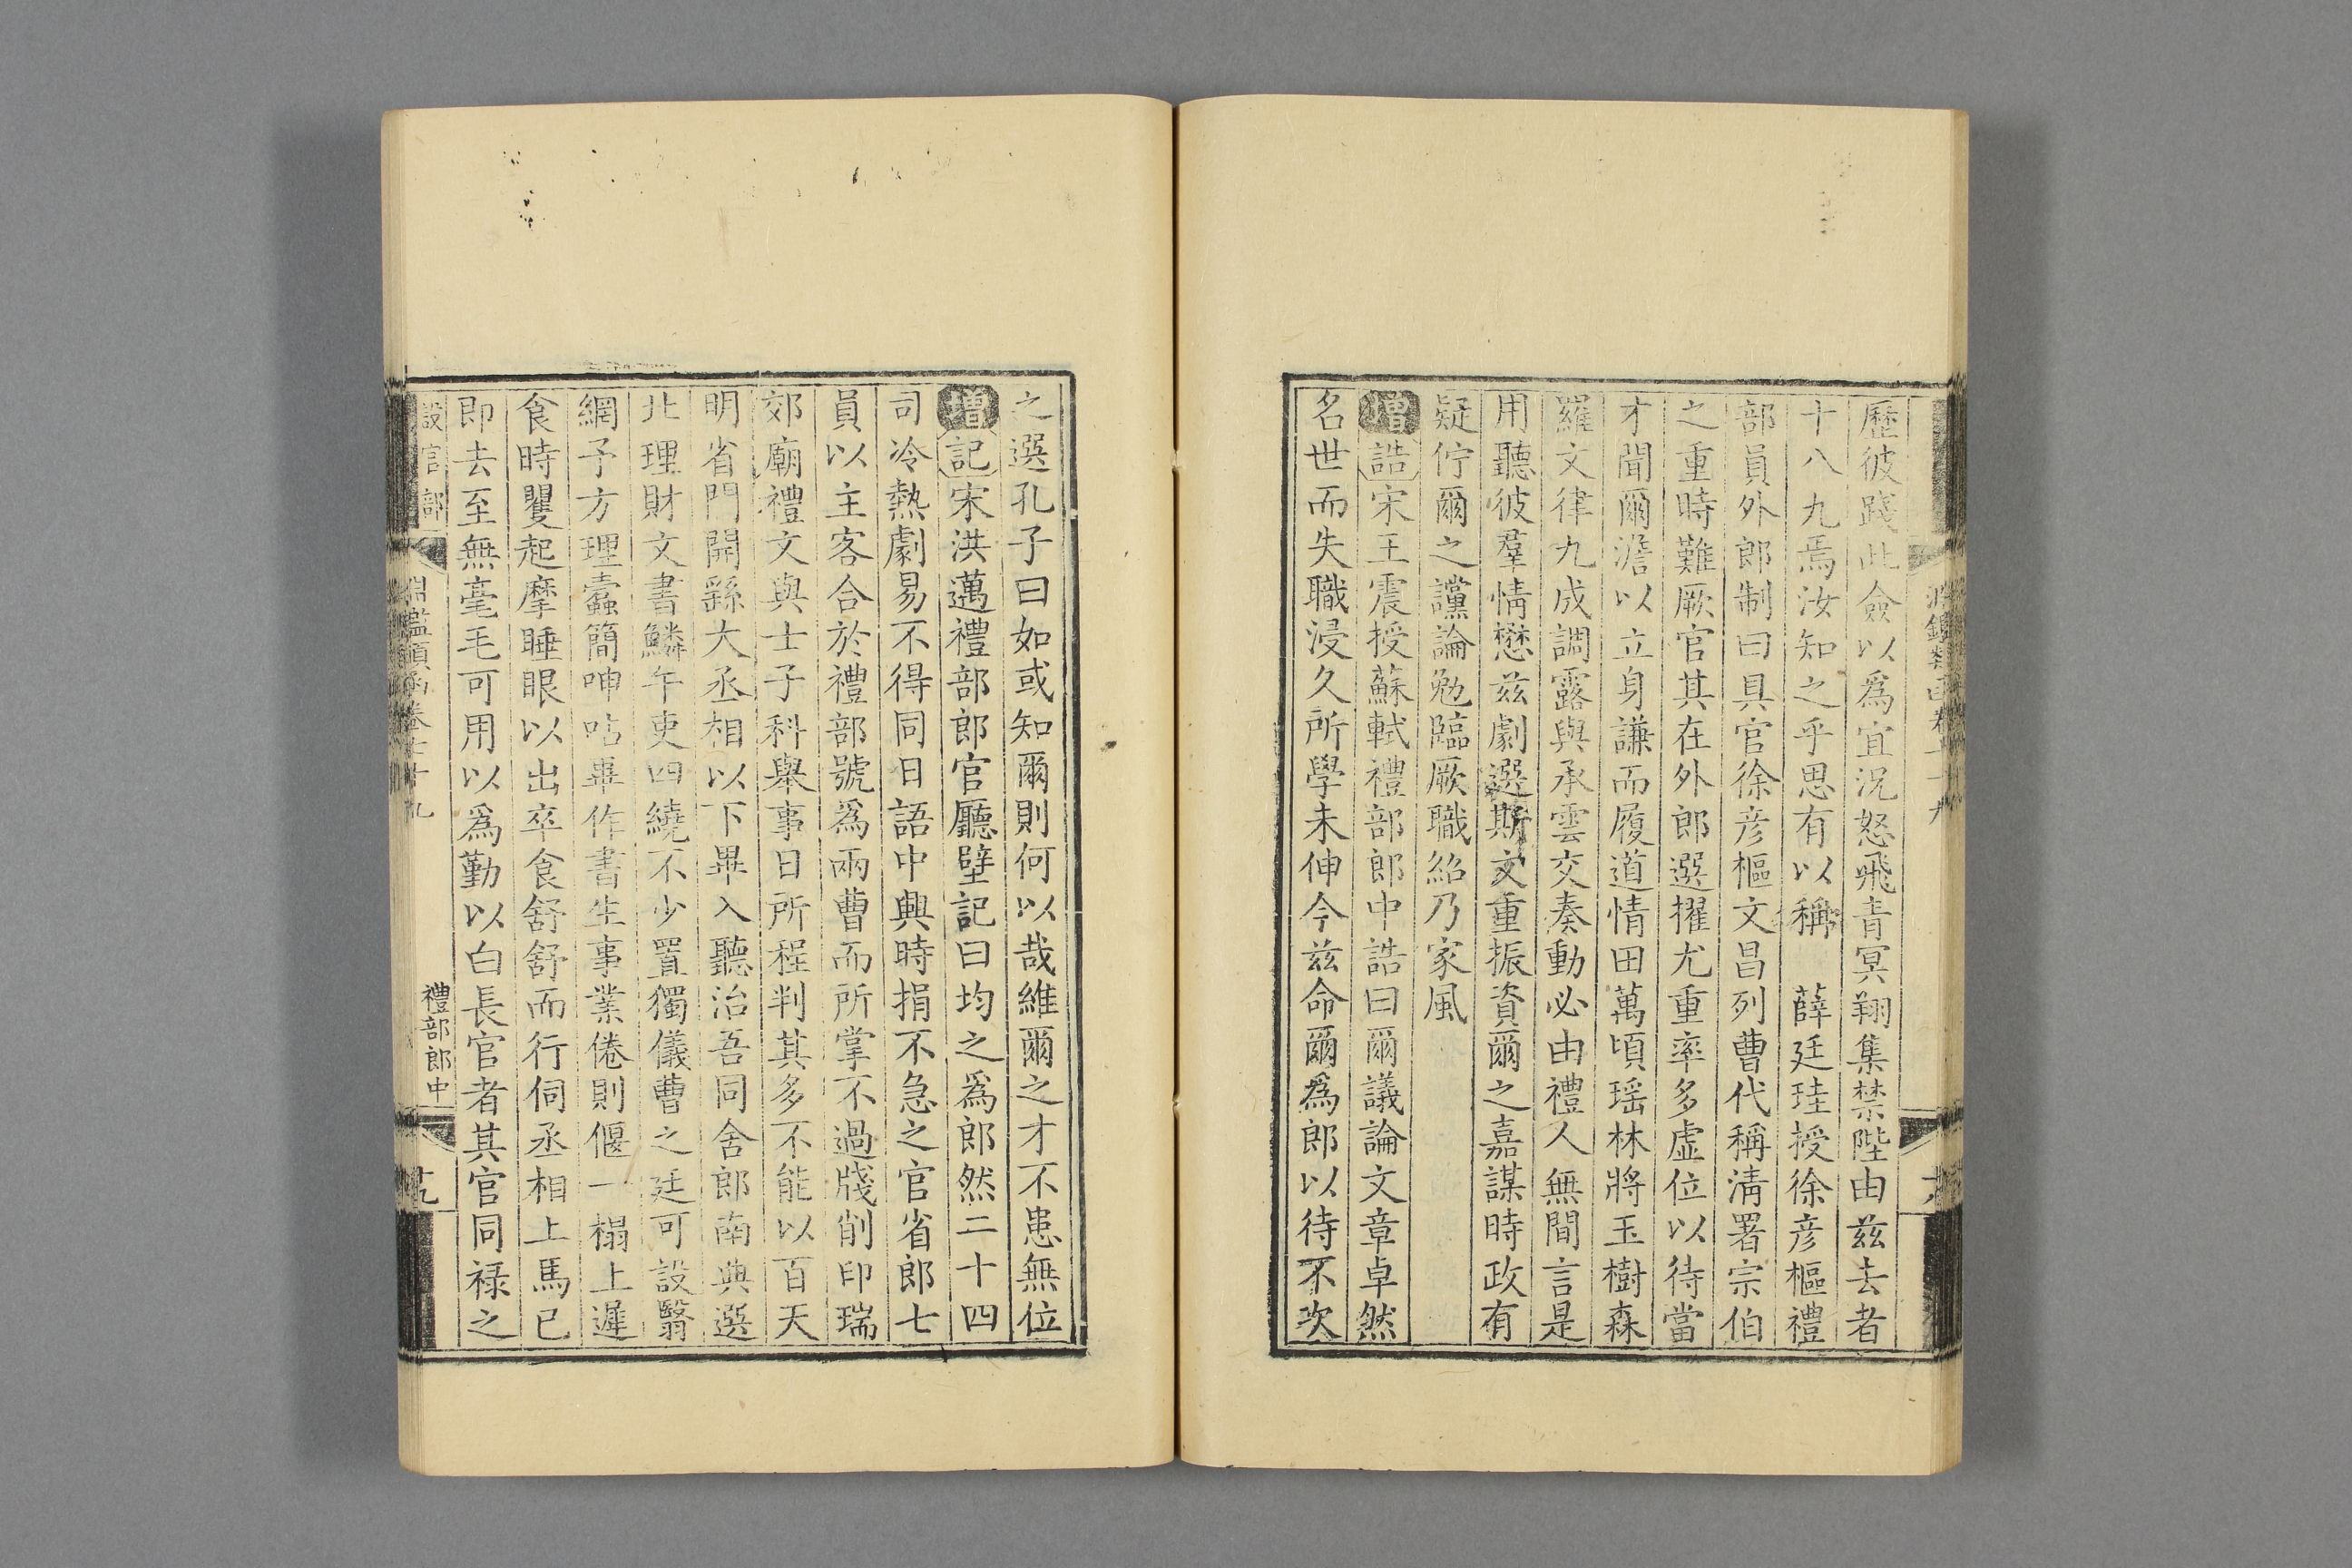 歷彼踐此僉以爲宜況怒飛青冥翔集禁陛由兹去者
十八九焉汝知之乎思有以稱　薛廷珪授徐彦樞禮
部員外郎制曰具官徐彦樞文昌列曹代稱清署宗伯
之重時難厥官其在外郎選擢尤重率多虚位以待當
才聞爾澹以立身謙而履道情田萬頃瑶林將玉樹森
羅文律九成調露與承雲交奏動必由禮人無間言是
用聽彼羣情懋兹劇選斯文重振資爾之嘉謀時政有
疑佇爾之讜論勉臨厥職紹乃家風
增誥宋王震授蘇軾禮部郎中誥曰爾議論文章卓然
名世而失職浸久所學未伸今兹命爾爲郎以待不次
之選孔子曰如或知爾則何以哉維爾之才不患無位
增記宋洪邁禮部郎官廳壁記曰均之爲郎然二十四
司冷熱劇易不得同日語中興時捐不急之官省郎七
員以主客合於禮部號爲兩曹而所掌不過牋削印瑞
郊廟禮文與士子科舉事日所程判其多不能以百天
明省門開繇大丞相以下畢入聽治吾同舍郎南典選
北理財文書鱗午吏四繞不少置獨儀曹之廷可設翳
網予方理蠹簡呻呫畢作書生事業倦則偃一榻上遲
食時矍起摩睡眼以出卒食舒舒而行伺丞相上馬已
即去至無毫毛可用以爲勤以白長官者其官同禄之
設官部
淵鑑類函卷七十九
禮部郎中
十九